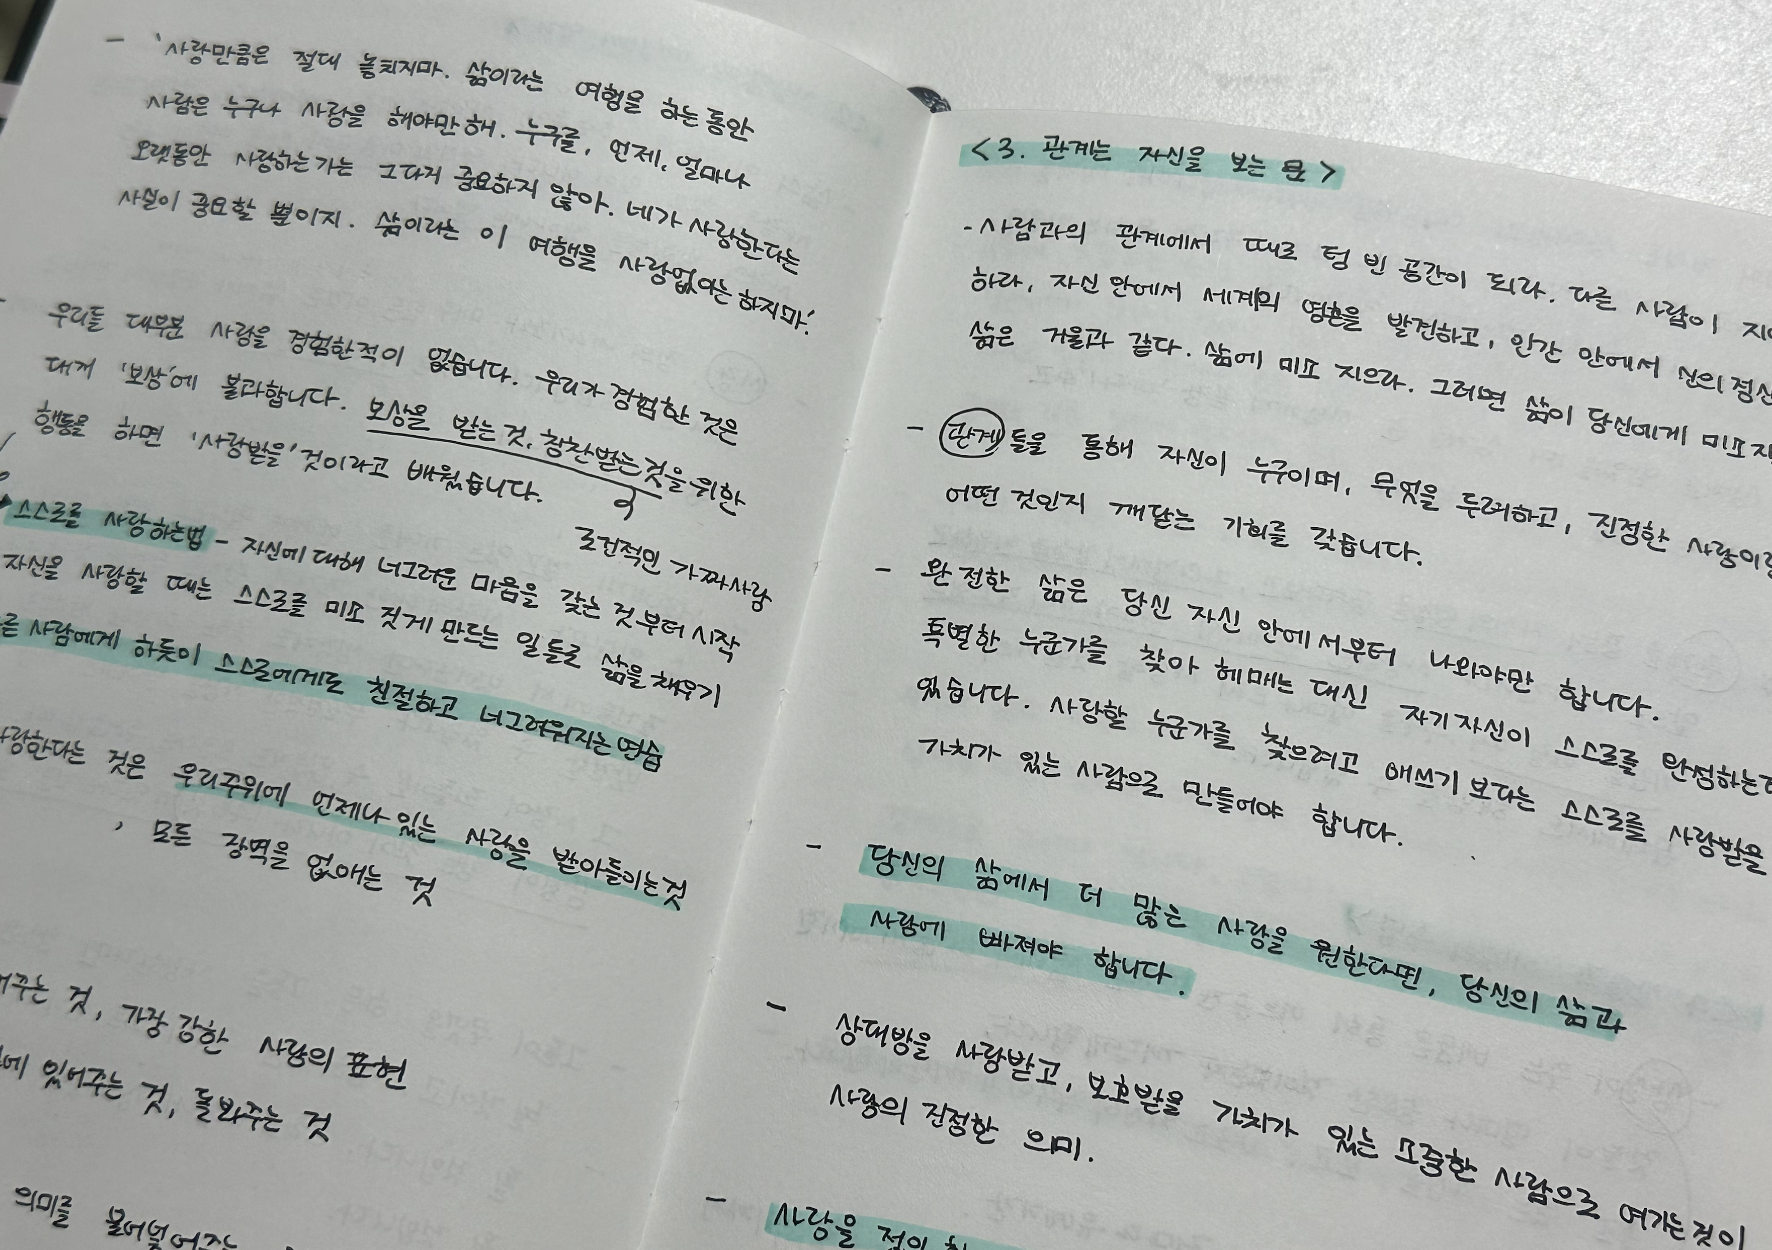 - '사랑만큼은 절대 놓치지마. 삶이라는 여행을 하는동안
사람은 누구나 사랑을 해야만 해. 누구를, 언제, 얼마나
오랫동안 사랑하는가는 그다지 중요하지 않아. 네가 사랑한다는
사실이 중요할 뿐이지. 삶이라는 이 여행을 사랑없이는 하지마.'
- 우리들 대부분 사랑을 경험한적이 없습니다. 우리가 경험한 것은
대개 '보상'에 불과합니다. 보상을 받는 것, 칭찬받는 것을 위한
행동을 하면 '사랑받을' 것이라고 배웠습니다.
조건적인 가짜사랑
스스로를 사랑하는법 - 자신에 대해 너그러운 마음을 갖는 것부터 시작
자신을 사랑할 때는 스스로를 미소 짓게 만드는 일들로 삶을 채우기
사람에게 하듯이 스스로에게도 친절하고 너그러워지는 연습
것은 우리주위에 언제나 있는 사랑을 받아들이는것
, 모든 장벽을 없애는 것
것, 가장 강한 사랑의 표현
있어주는 것, 돌봐주는 것
의미를
<3. 관계는 자신을 보는 문>
- 사람과의 관계에서 때로 텅 빈 공간이 되라. 다른 사람이
하라, 자신 안에서 세계의 영혼을 발견하고, 인간 안에서 신의
삶은 거울과 같다. 삶에 미소 지으라. 그러면 삶이 당신에게 미소
- 관계들을 통해 자신이 누구이며, 무엇을 두려하고, 진정한
어떤 것인지 깨닫는 기회를 갖습니다.
- 완전한 삶은 당신 자신 안에서부터 나와야만 합니다.
특별한 누군가를 찾아 헤매는 대신 자기자신이 스스로를
있습니다. 사랑할 누군가를 찾으려고 애쓰기 보다는 스스로를 사랑받을
가치가 있는 사람으로 만들어야 합니다.
- 당신의 삶에서 더 많은 사랑을 원한다면, 당신의 삶과
사랑에 빠져야 합니다.
- 상대방을 사랑받고, 보호받을 가치가 있는 소중한 사람으로 여기는것이
사랑의 진정한 의미.
- 사랑을